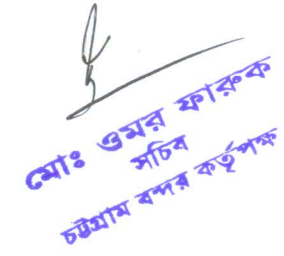 মোঃ ওমর ফারুক
সচিব
চট্টগ্রাম বন্দর কর্তৃপক্ষ